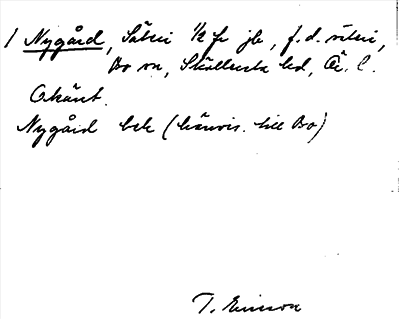 1 Nygård, Säteri 1/2 fr jb, f.d. säteri,
Bo sn, Skyllersta hd, Ör. l.
Okänt.
Nygård bek (hänvis. till Bo)
T. Ericsson